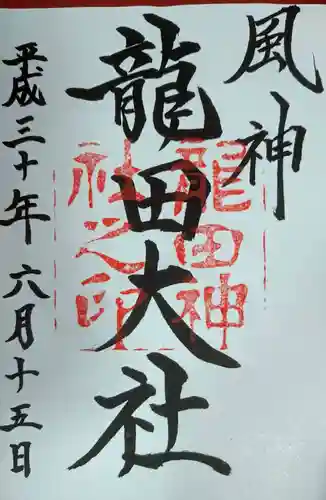 風神
龍田大社
平成三十年六月十五日
龍田神
社之印